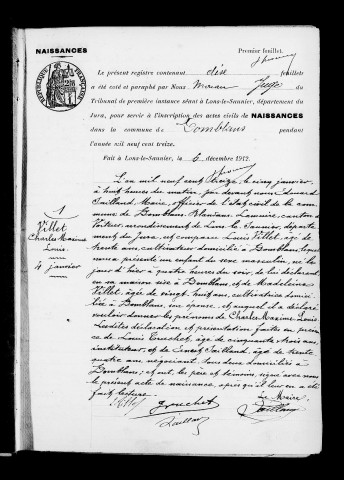 NAISSANCES
Premier feuillet.
Le présent registre contenant dixe feuillets
a été coté et paraphé par Nous Juge du
Tribunal de première instance séant à Lons-le-Saunier, département du
Jura, pour servir à l'inscription des actes civils de NAISSANCES
dans la commune de Domblans pendant
l'année mil neuf cent treize.
Fait à Lons-le-Saunier, le 6 décembre 1912.
RÉPUBLIQUE FRANÇAISE
1
Villet
Charles Maxime
Louis
4 janvier
L'an mil neuf cent treize, le cinq janvier,
à huit heures du matin, par devant nous Edouard
Tailland Maire, officier de l'état civil de la com
mune de Domblans canton de
Voiteur, arrondissement de Lons-le-Saunier, départe
ment du Jura, est comparu Louis Villet, âgé de
trente ans, cultivateur domicilié à Domblans, lequel
nous a présenté un enfant du sexe masculin, né le
jour d'hier à quatre heures du soir, de lui déclarant
en sa maison sise à Domblans, et de Madeleine
Villet, âgée de vingt huit ans, cultivatrice domici
liée à Domblans, son épouse, et auquel il a déclaré
vouloir donner les prénoms de Charles Maxime Louis.
Lesdites déclaration et présentation faites en présen
ce de Louis Truchet, âgé de cinquante trois ans,
instituteur, et de Ernest Tailland, âgé de trente
quatre ans, négociant, tous deux domiciliés à
Domblans; et ont, les père et témoins, signé avec nous
le présent acte de naissance, après qu'il leur en a été
fait lecture.
Le Maire
Villet Truchet Tailland
Tailland